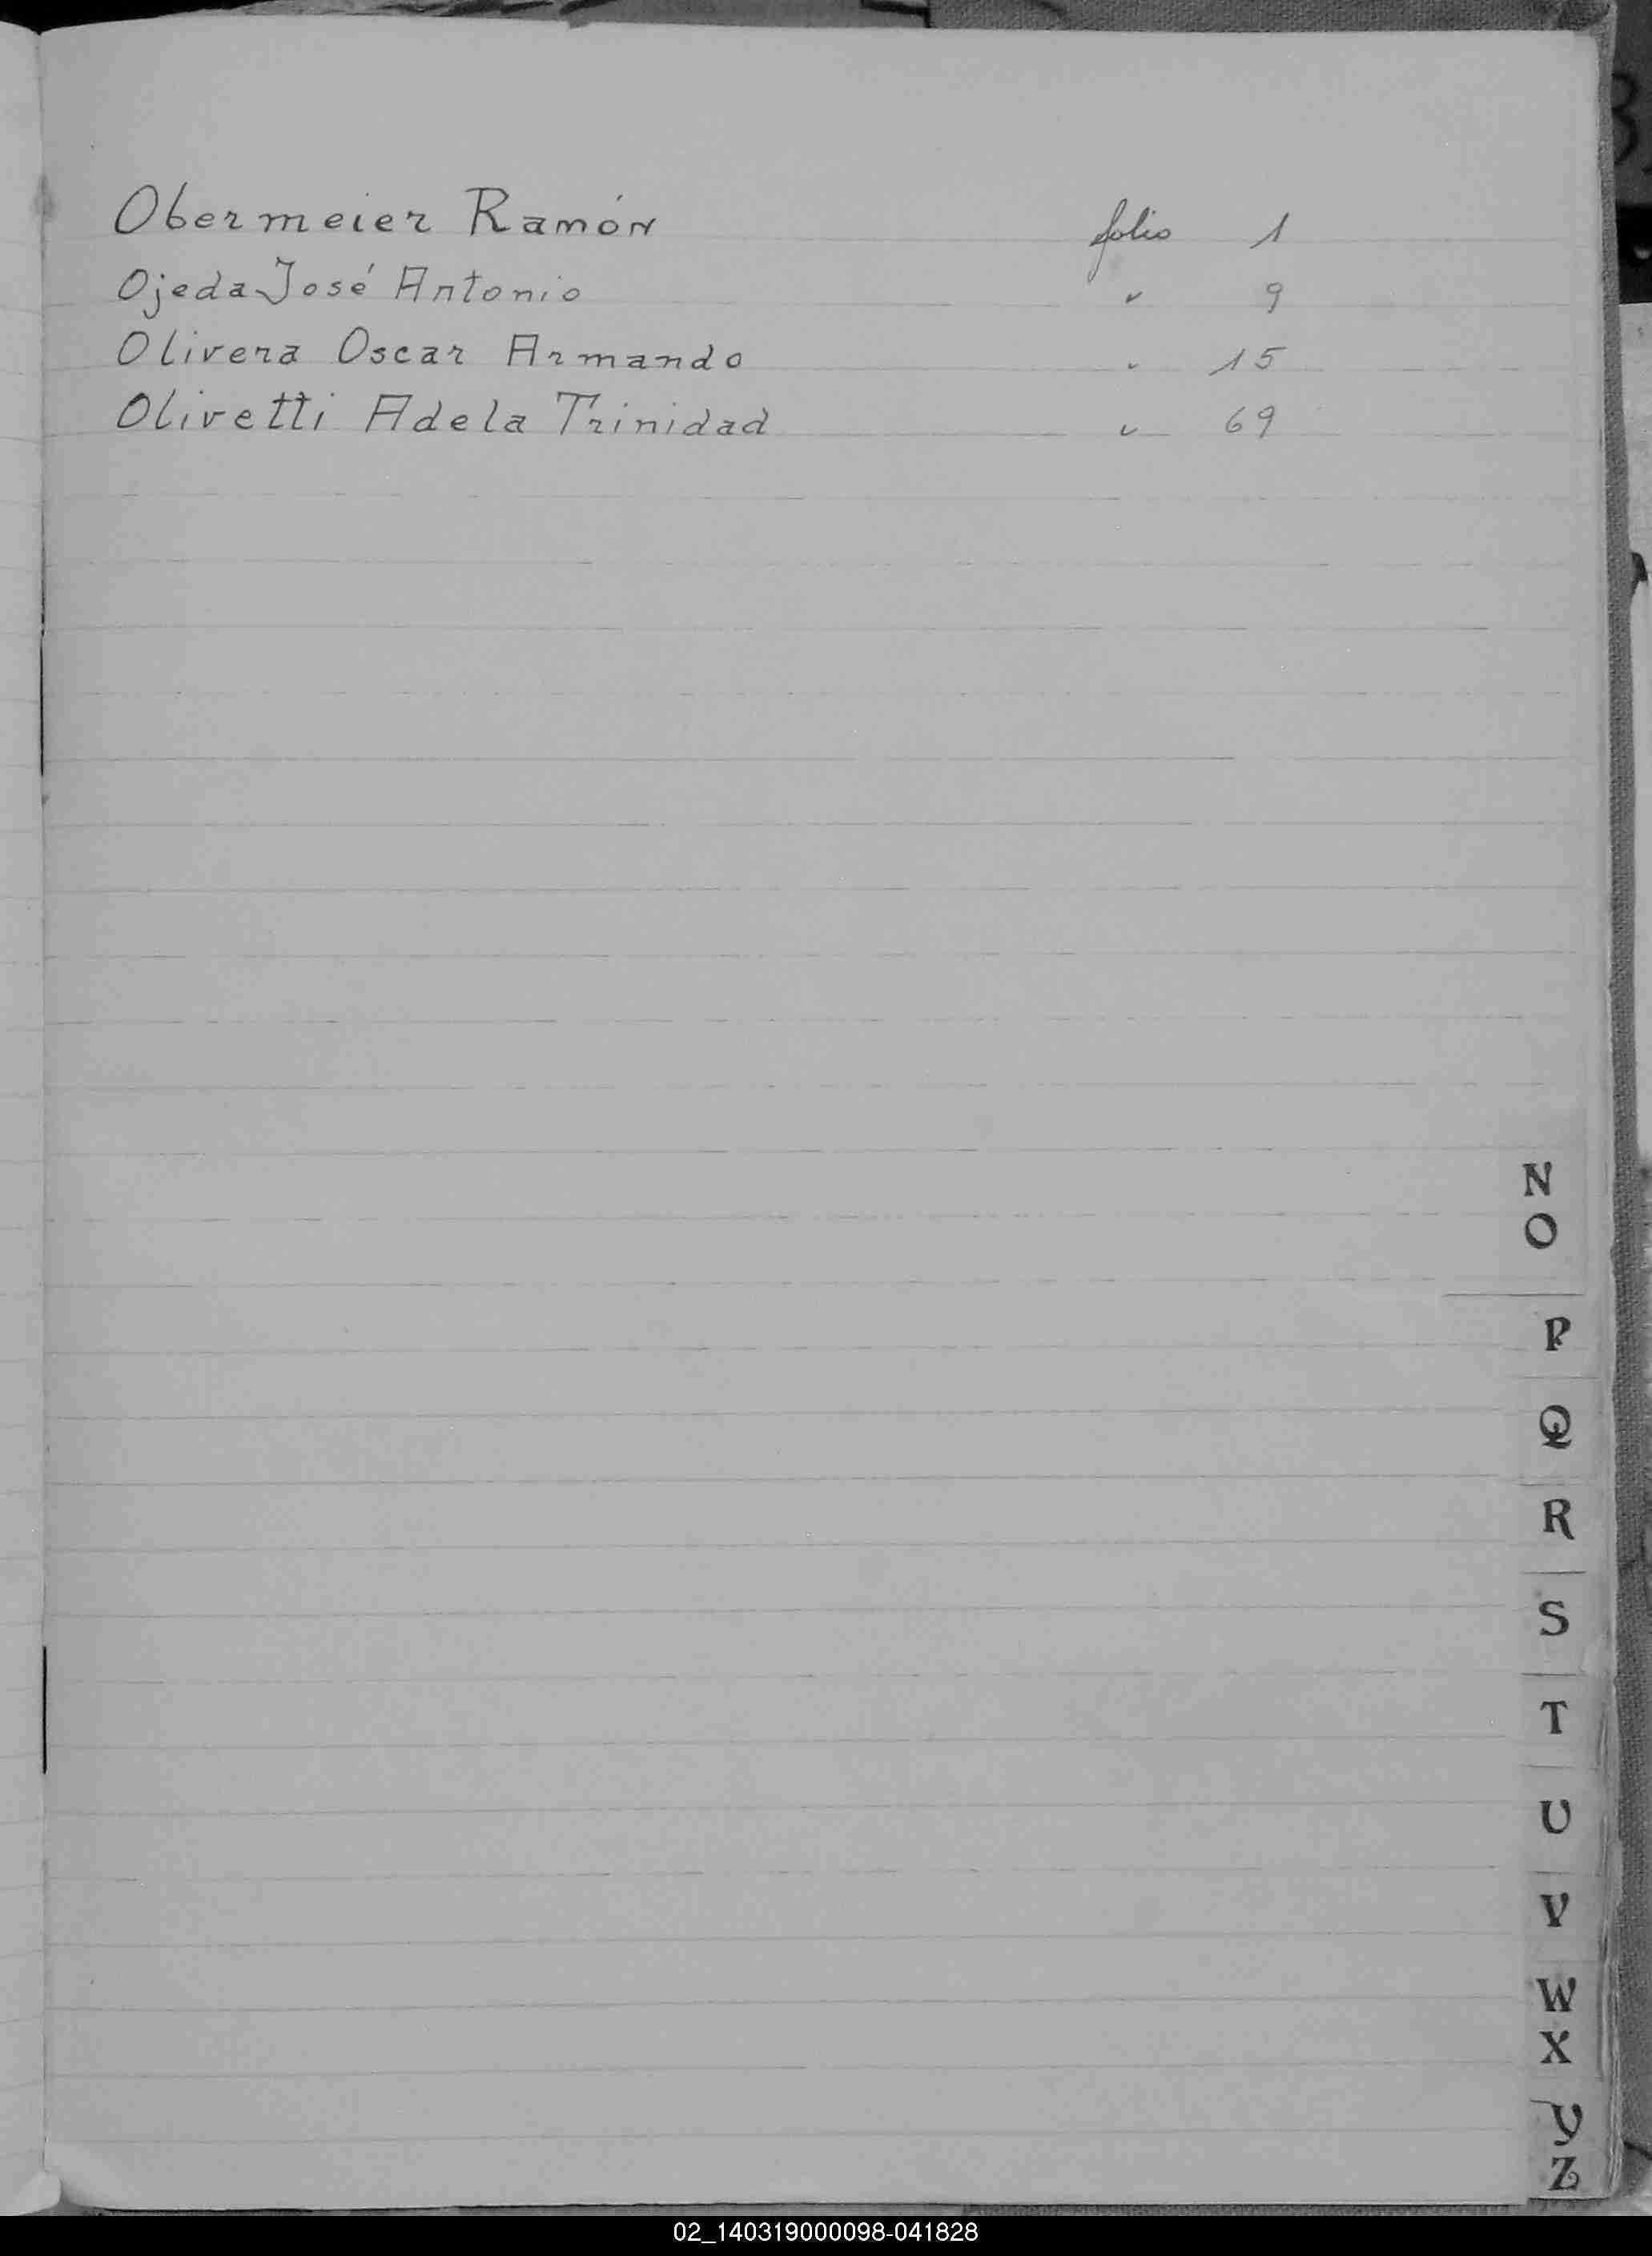 Obermeier Ramón folio 1
Ojeda José Antonio " 9
Olivera Oscar Armando " 15
Olivetti Adela Trinidad " 69
N
O
P
Q
R
S
T
U
V
W
X
Y
Z
02_140319000098-041828